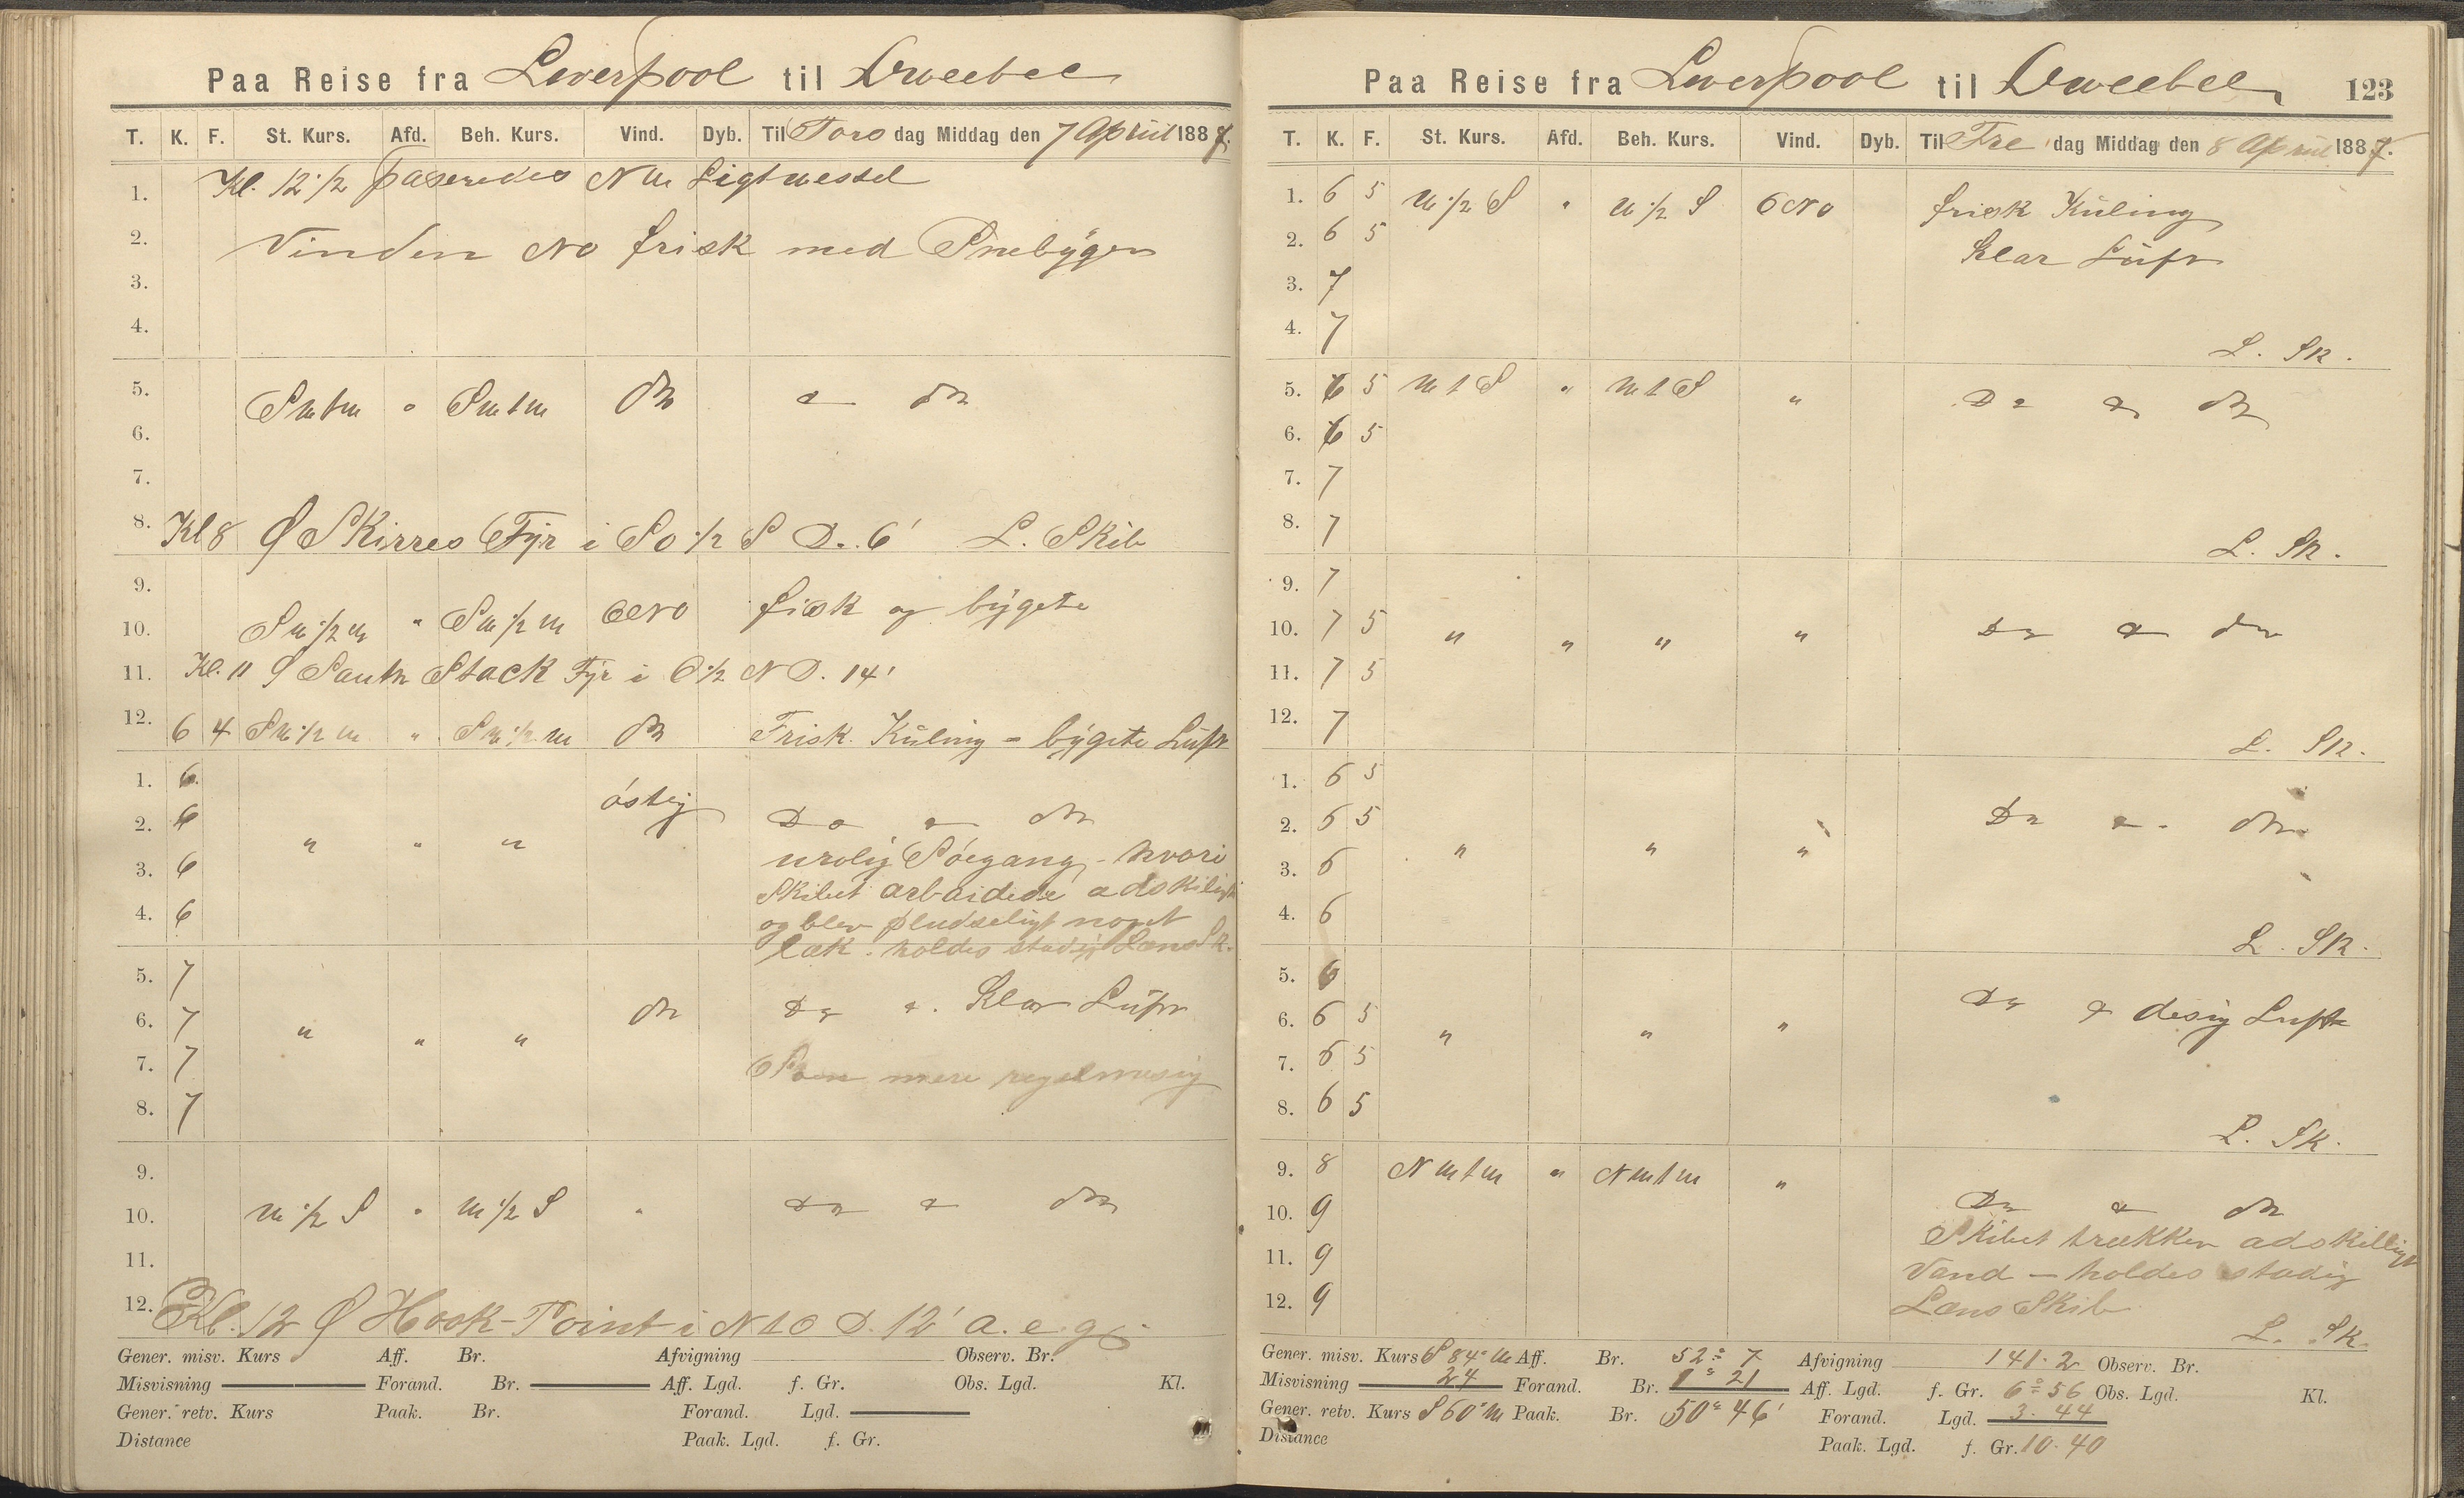 Paa Reise fra Liverpool til Qveebec
T. K. F. St. Kurs. Afd. Beh. Kurs. Vind. Dyb. Til Tors dag Middag den 7 April 1887.
1. Kl. 12 1/2 paseredes NW Ligtwessel
2. Vinden NO frisk med Snebyger
3.
4.
5. SWtW " SWtW do a do
6.
7.
8. Kl 8 Ø SKirres Fyr i SO 1/2 S D. 6' L. Skib
9.
10. SW 1/2 W " SW 1/2 W ONO frisk og bygete
11. Kl. 11 Ø South Stack Fyr i O 1/2 N D. 14'
12. 6 4 SW 1/2 W " SW 1/2 W do Frisk Küling - bygete Luft
1. 6
2. 6 " " " östlig Do a do
3. 6 urolig Söegang - hvori
Skibet arbaidede adskiligt
4. 6 og blev pludseligt noget
læk. holdes stadig Læns Sk.
5. 7
6. 7 " " " do Do a. Klar Luft
7. 7 Söen mere regelmesig
8. 7
9.
10. W 1/2 S " W 1/2 S " Do a do
11.
12. Kl. 12 Ø Hook-Point i NtO D. 12' a. e. g.
Gener. misv. Kurs Aff. Br. Afvigning Observ. Br.
Misvisning Forand. Br. Aff. Lgd. f. Gr. Obs. Lgd. Kl.
Gener. retv. Kurs Paak. Br. Forand. Lgd.
Distance Paak. Lgd. f. Gr.
Paa Reise fra Liverpool til Qveebec 123
T. K. F. St. Kurs. Afd. Beh. Kurs. Vind. Dyb. Til Fre dag Middag den 8 April 1887.
1. 6 5 W 1/2 S " W 1/2 S ONO frisk Küling
2. 6 5 Klar Luft
3. 7
4. 7 L. Sk.
5. 6 5 WtS " WtS " Do a do
6. 6 5
7. 7
8. 7 L. Sk.
9. 7
10. 7 5 " " " " Do a do
11. 7 5
12. 7 L. Sk.
1. 6 5
2. 6 5 " " " Do a do
3. 6
4. 6 L. Sk.
5. 6
6. 6 5 " " " Do a disig Luft
7. 6 5
8. 6 5 L. Sk.
9. 8 NWtW " NWtW "
10. 9 Do a do
11. 9 Skibet trækker adskilligt
Vand - holdes stadig
12. 9 Læns Skib
L. Sk.
Gener. misv. Kurs S 84° W Aff. Br. 52° 7 Afvigning 141.2 Observ. Br.
Misvisning 24 Forand. Br. 1° 21 Aff. Lgd. f. Gr. 6° 56 Obs. Lgd. Kl.
Gener. retv. Kurs S 60° W Paak. Br. 50° 46' Forand. Lgd. 3. 44
Distance Paak. Lgd. f. Gr. 10. 40